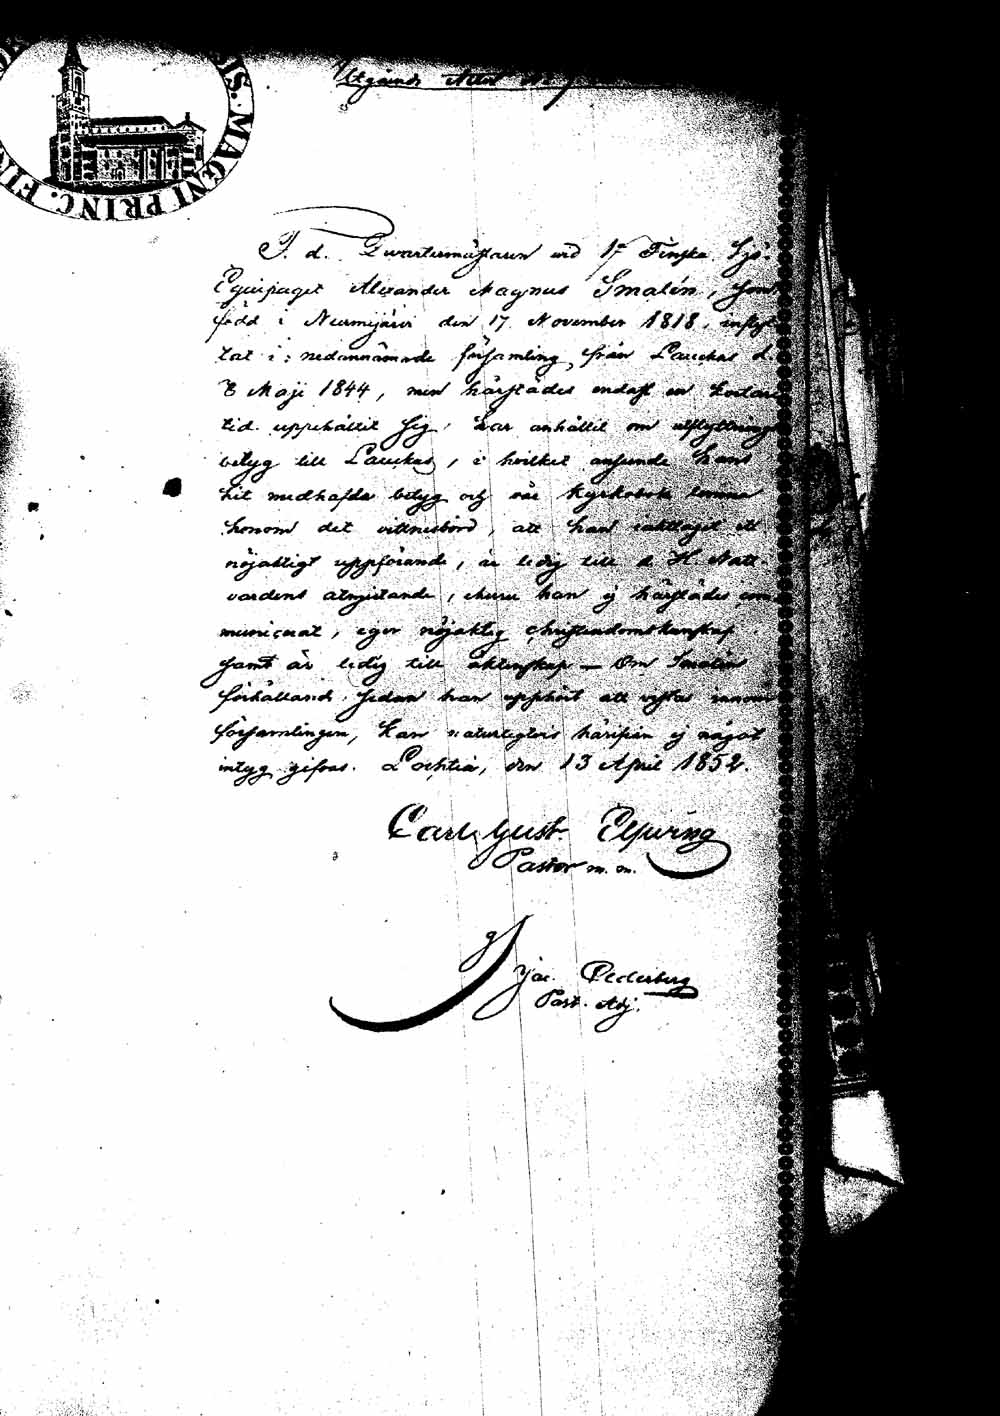 MAGNI PRINC. FIN
Utgående
F. d. Qvartermästaren vid 1sta Finska Sjö-
Equipaget Alexander Magnus Smalén, som
född i Nurmijärvi den 17 November 1818, inflyt-
tat i nedannämnde församling från Laukas d.
8 Maji 1844, men härstädes endast en kortare
tid uppehållit sig, har anhållit om utflyttnings
betyg till Laukas, i hvilket anseende hans
hit medhafda betyg och vår Kyrkobok lemna
honom det vittnesbörd, att han iakttagit ett
nöjaktigt uppförande, är ledig till d. H. Natt-
vardens åtnjutande, churu han ej härstädes com-
municerat, eger nöjaktig christendomskunskap
samt är ledig till äktenskap — Om Smaléns
förhållande, sedan han upphört att vistas innom
församlingen, kan naturligtvis härifrån ej något
intyg gifvas. Lochteå, den 13 April 1852.
Carl Gust. Elfving
Pastor m. m.
Jac. Cederberg
Past. Adj.